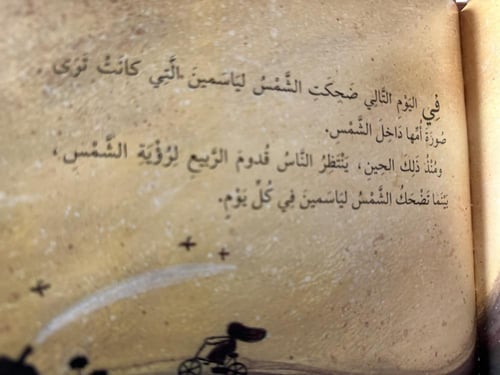 فِي اليَوْمِ التَّالِي ضَحِكَتِ الشَّمْسُ لِيَاسَمينَ الَّتِي كَانَتْ تَرَى
صُورَةَ أُمِّها دَاخِلَ الشَّمْسِ.
وَمُنْذُ ذَلِكَ الحِينِ، يَنْتَظِرُ النَّاسُ قُدومَ الرَّبِيعِ لِرُؤْيَةِ الشَّمْسِ،
بَيْنَمَا تَضْحَكُ الشَّمْسُ لِيَاسَمينَ فِي كُلِّ يَوْمٍ.